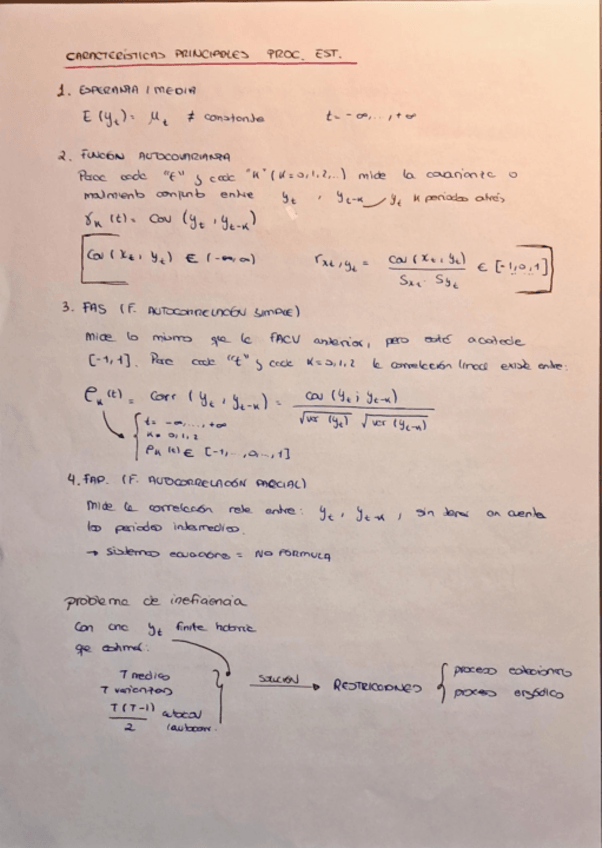 CARACTERÍSTICAS PRINCIPALES PROC. EST.
1. ESPERANZA / MEDIA
E(yₜ) = μₜ ≠ constante t = -∞,..., +∞
2. FUNCIÓN AUTOCOVARIANZA
Para cada "t" y cada "K" (K=0,1,2,...) mide la covarianza o
movimiento conjunto entre yₜ , yₜ₋ₖ yₜ K periodos atrás
γₖ(t) = Cov (yₜ , yₜ₋ₖ)
Cov (xₜ, yₜ) ∈ (-∞,∞) rxₜ,yₜ = cov (xₜ, yₜ) / Sxₜ · Syₜ ∈ [-1,0,1]
3. FAS (F. AUTOCORRELACIÓN SIMPLE)
Mide lo mismo que la FACV anterior, pero está acotada
[-1,1]. Para cada "t" y cada K=0,1,2 la correlación lineal existe entre:
ρₖ(t) = Corr (yₜ , yₜ₋ₖ) = cov (yₜ ; yₜ₋ₖ) / √var (yₜ) √var (yₜ₋ₖ)
t = -∞,..., +∞
K = 0,1,2
ρₖ(t) ∈ [-1,..,0,...,1]
4. FAP. (F. AUTOCORRELACIÓN PARCIAL)
Mide la correlación neta entre: yₜ , yₜ₋ₖ , sin tener en cuenta
los periodos intermedios.
→ Sistemas ecuaciones = NO FORMULA
problema de ineficiencia
Con una yₜ finita habría
que estimar:
T medias
T varianzas
T(T-1) / 2 autocov
/autocorr.
SOLUCIÓN → RESTRICCIONES
proceso estacionario
proceso ergódico